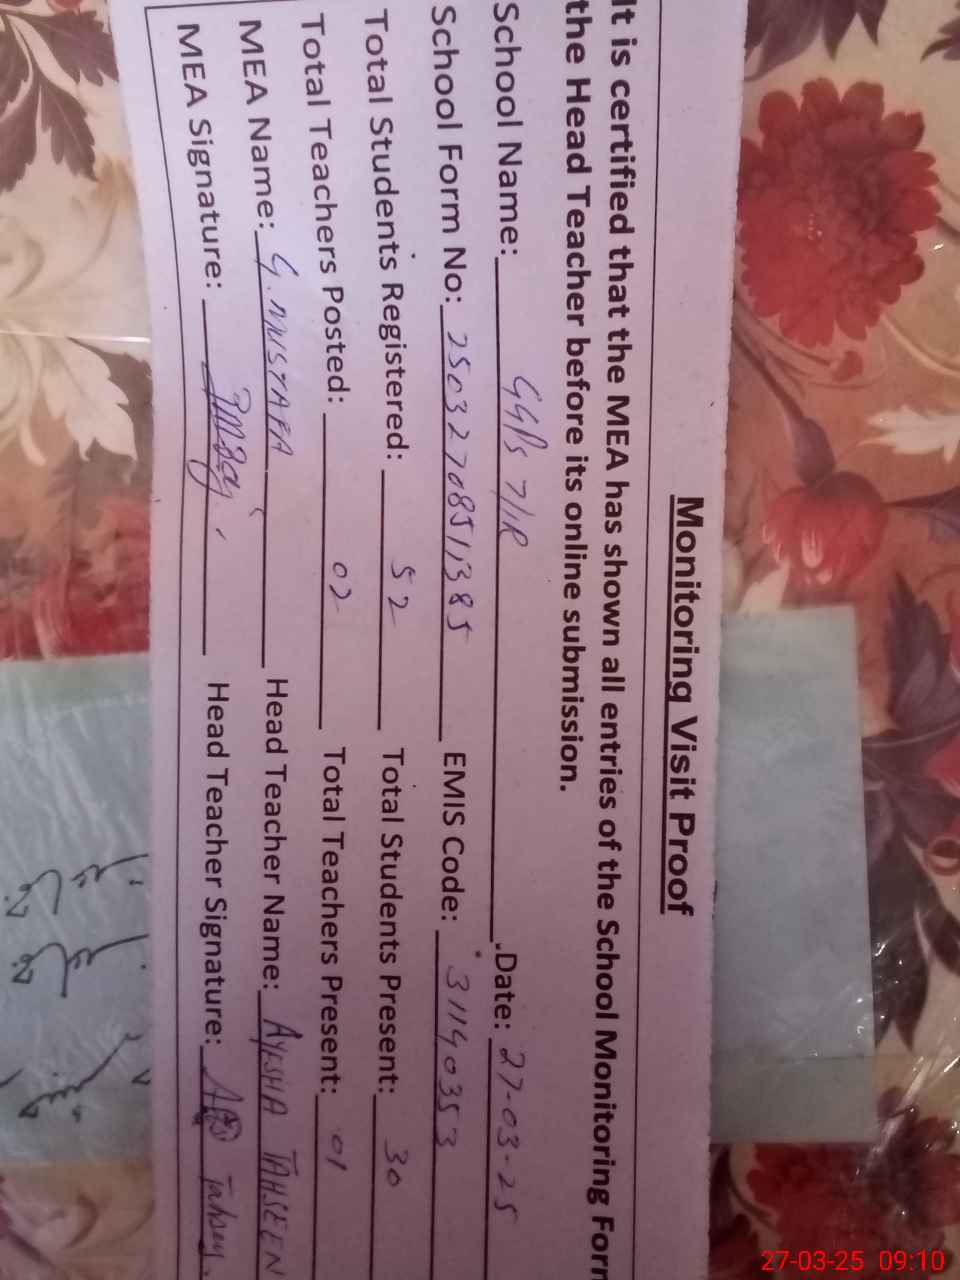 Monitoring Visit Proof
It is certified that the MEA has shown all entries of the School Monitoring Form
the Head Teacher before its online submission.
School Name: GGPS 7/1R Date: 27-03-25
School Form No: 25032708511385 EMIS Code: 31140353
Total Students Registered: 52 Total Students Present: 30
Total Teachers Posted: 02 Total Teachers Present: 01
MEA Name: G. MUSTAFA Head Teacher Name: AYESHA TAHSEEN
MEA Signature: Head Teacher Signature:
27-03-25 09:10